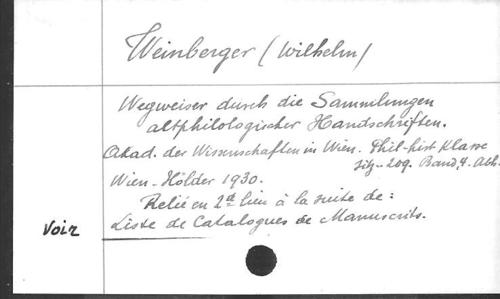 Weinberger (Wilhelm)
Wegweiser durch die Sammlungen
altphilologischer Handschriften.
Akad. der Wissenschaften in Wien. Phil-hist Klasse
Sitz-209. Band, 4. Abh.
Wien-Hölder 1930.
Relié en 2d lieu à la suite de:
Voir Liste de Catalogues de Manuscrits.